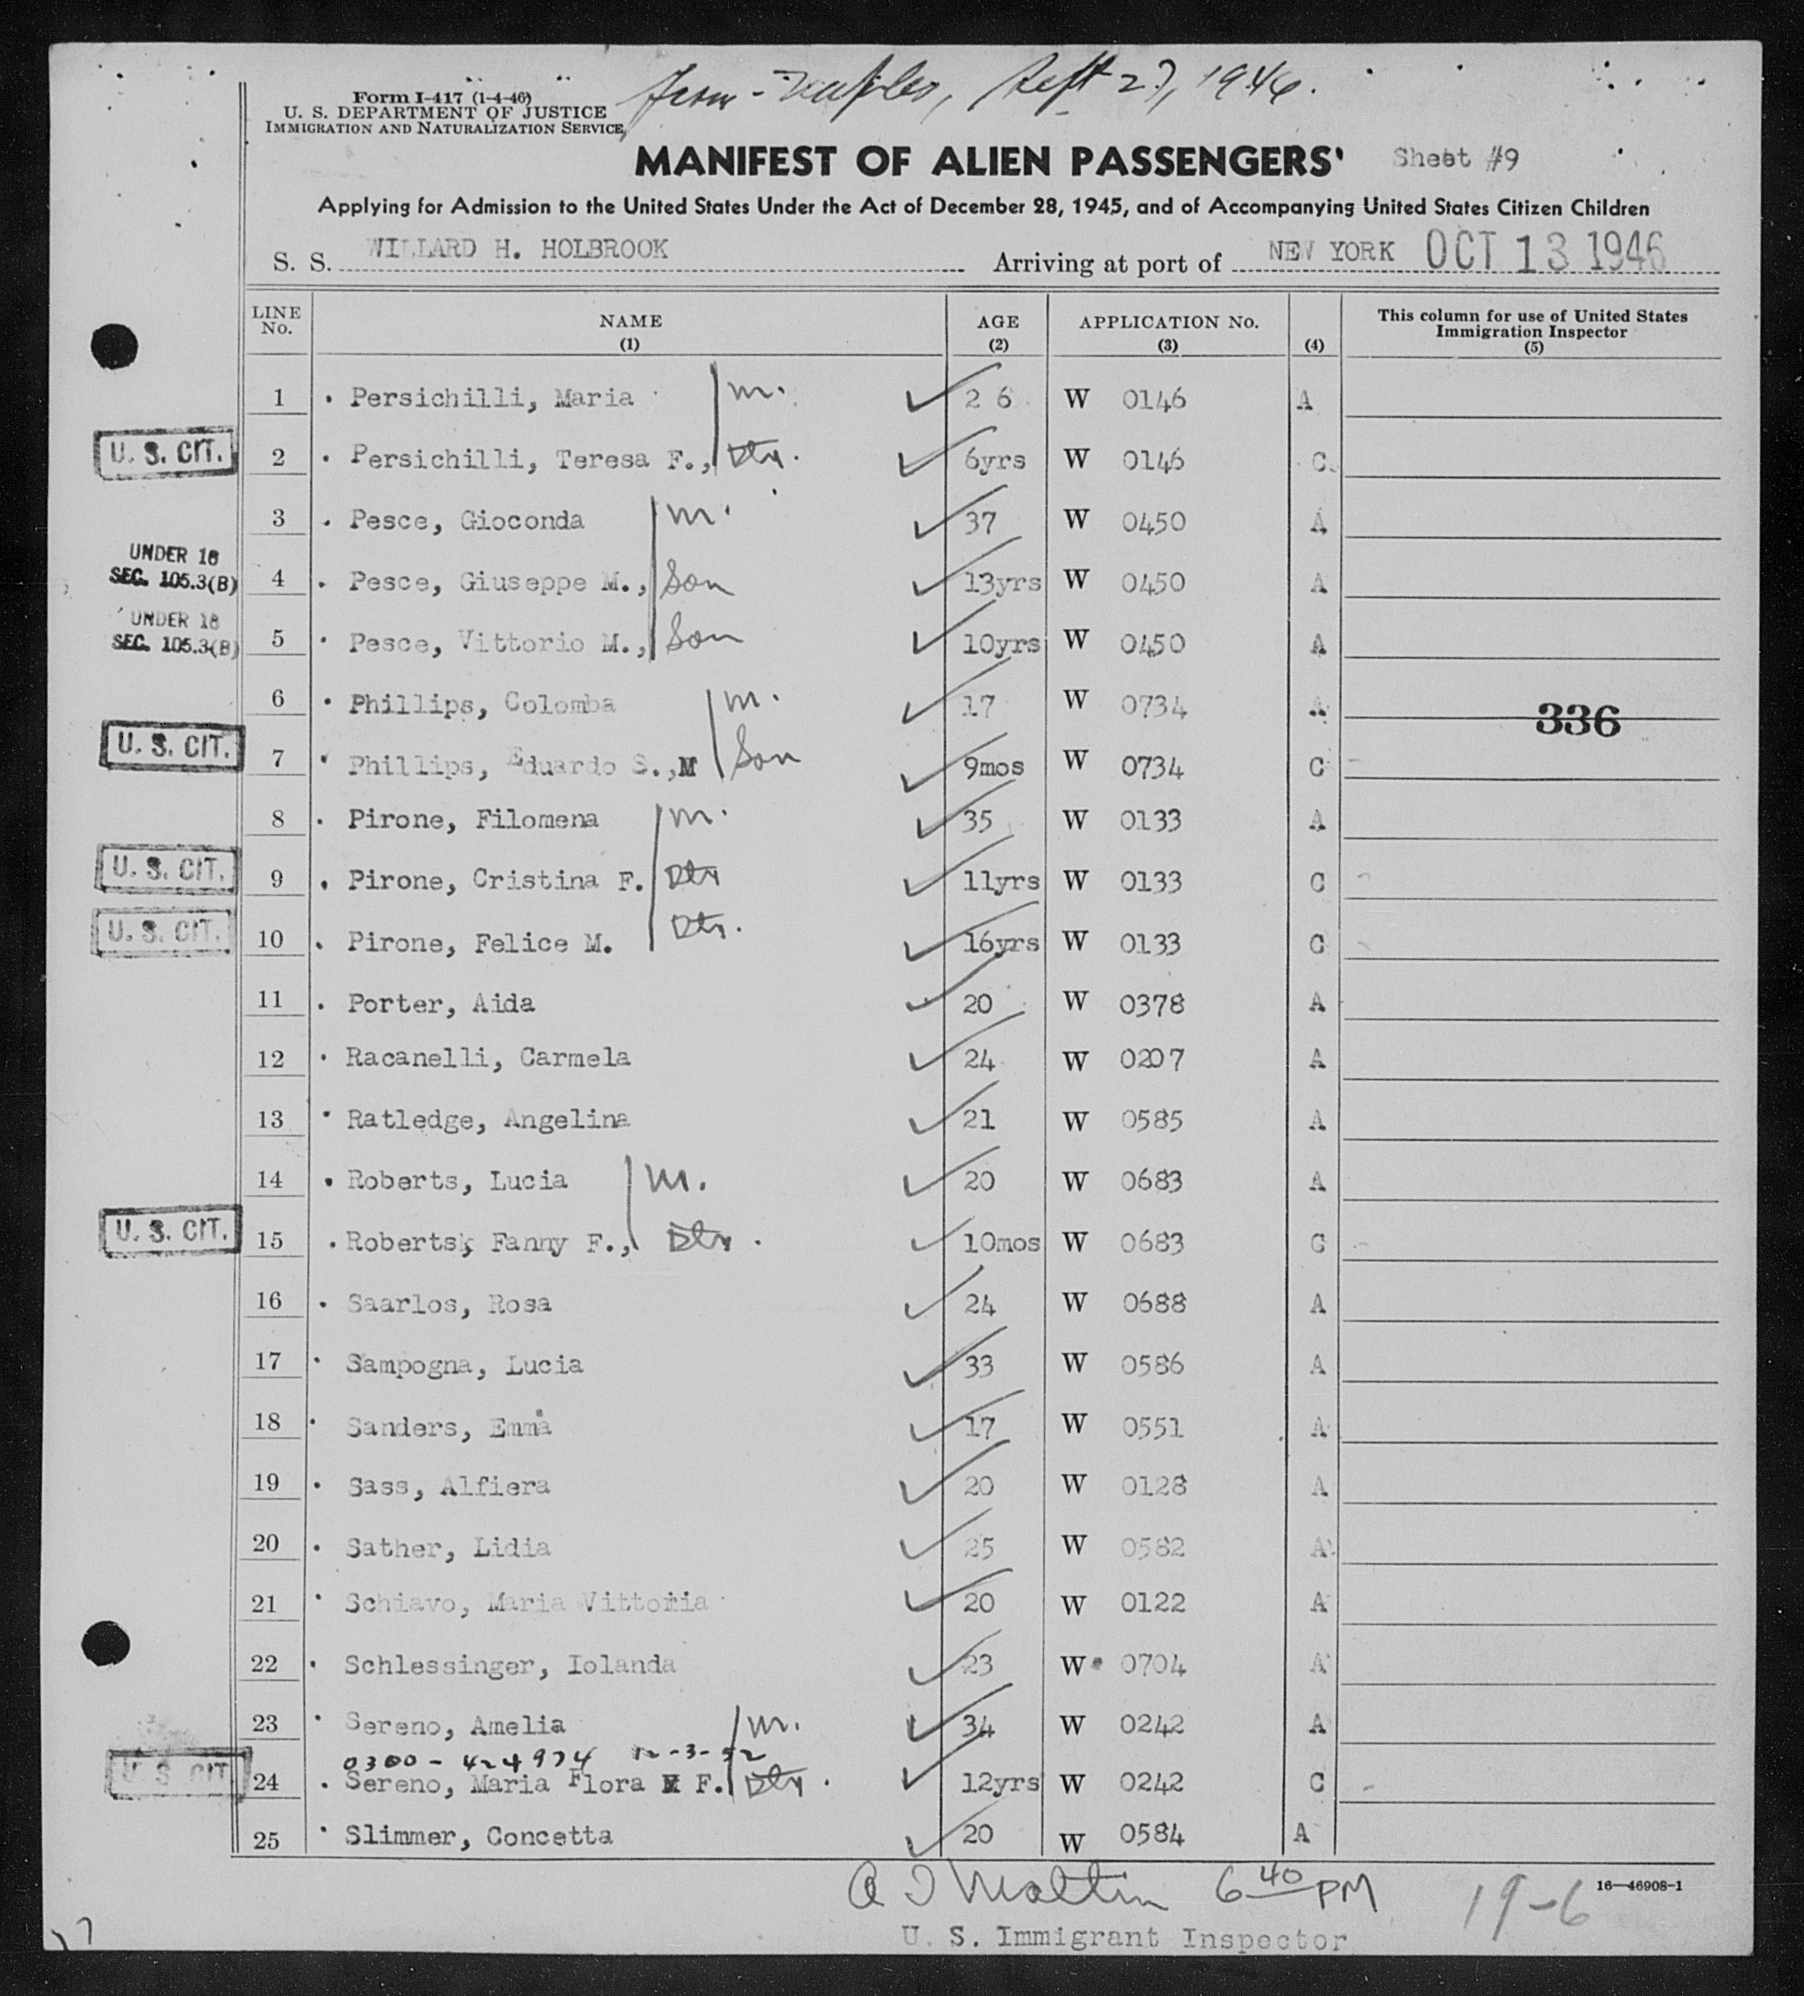 from - Naples, Sept 27, 1946.
Form I-417 (1-4-46)
U. S. DEPARTMENT OF JUSTICE
IMMIGRATION AND NATURALIZATION SERVICE
MANIFEST OF ALIEN PASSENGERS Sheet #9
Applying for Admission to the United States Under the Act of December 28, 1945, and of Accompanying United States Citizen Children
S. S. WILLARD H. HOLBROOK Arriving at port of NEW YORK OCT 13 1946
LINE No. NAME (1) AGE (2) APPLICATION No. (3) (4) This column for use of United States Immigration Inspector (5)
1 Persichilli, Maria m. 26 W 0146 A
U. S. CIT. 2 Persichilli, Teresa F., Dtr. 6yrs W 0146 C
3 Pesce, Gioconda m. 37 W 0450 A
UNDER 16 SEC. 105.3(B) 4 Pesce, Giuseppe M., Son 13yrs W 0450 A
UNDER 16 SEC. 105.3(B) 5 Pesce, Vittorio M., Son 10yrs W 0450 A
6 Phillips, Colomba m. 17 W 0734 A 336
U. S. CIT. 7 Phillips, Eduardo S.,M Son 9mos W 0734 C
8 Pirone, Filomena m. 35 W 0133 A
U. S. CIT. 9 Pirone, Cristina F. Dtr 11yrs W 0133 C
U. S. CIT. 10 Pirone, Felice M. Dtr. 16yrs W 0133 C
11 Porter, Aida 20 W 0378 A
12 Racanelli, Carmela 24 W 0207 A
13 Ratledge, Angelina 21 W 0585 A
14 Roberts, Lucia m. 20 W 0683 A
U. S. CIT. 15 Roberts, Fanny F., Dtr. 10mos W 0683 C
16 Saarlos, Rosa 24 W 0688 A
17 Sampogna, Lucia 33 W 0586 A
18 Sanders, Emma 17 W 0551 A
19 Sass, Alfiera 20 W 0128 A
20 Sather, Lidia 25 W 0582 A
21 Schiavo, Maria Vittoria 20 W 0122 A
22 Schlessinger, Iolanda 23 W 0704 A
23 Sereno, Amelia m. 34 W 0242 A
0300 - 424974 12-3-52
U. S. CIT. 24 Sereno, Maria Flora F. Dtr. 12yrs W 0242 C
25 Slimmer, Concetta 20 W 0584 A
6 40 PM 19-6 16—46908-1
U. S. Immigrant Inspector